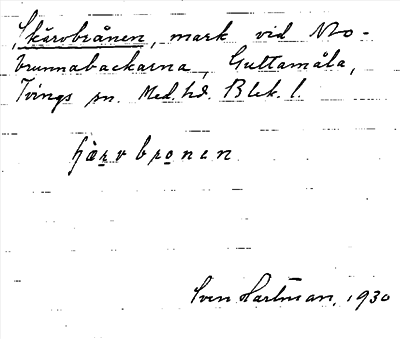 Skärvbrånen, mark vid Mo-
brunnabackarna, Guttamåla,
Tvings sn. Med. hd. Blek. l.
fjærvbronen
Sven Hartman, 1930